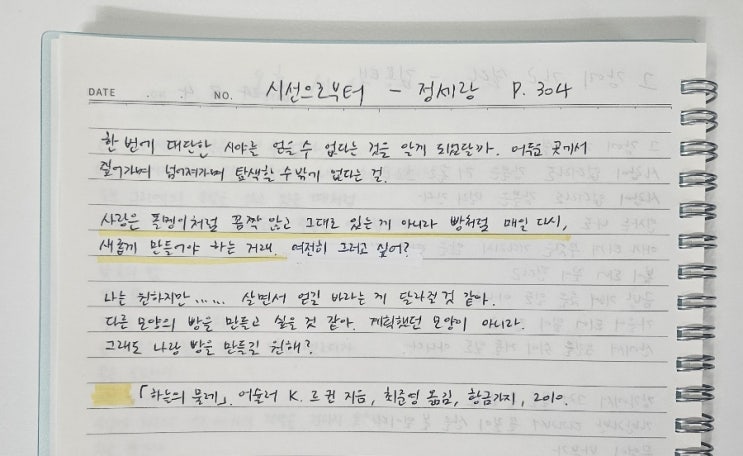 DATE . . . NO. 시선으로부터 - 정세랑 P. 304
한 번에 대단한 시야를 얻을 수 없다는 것을 알게 되었달까. 어두운 곳에서
짚어가며 넘어져가며 탐색할 수밖에 없다는 걸.
사랑은 돌멩이처럼 꼼짝 않고 그대로 있는 게 아니라 빵처럼 매일 다시,
새롭게 만들어야 하는 거래. 여전히 그러고 싶어?
나는 원하지만...... 살면서 얻길 바라는 게 달라진 것 같아.
다른 모양의 빵을 만들고 싶은 것 같아. 계획했던 모양이 아니라.
그래도 나랑 빵을 만들길 원해?
「하늘의 물레」. 어슐러 K. 르 귄 지음, 최준영 옮김, 황금가지, 2010.